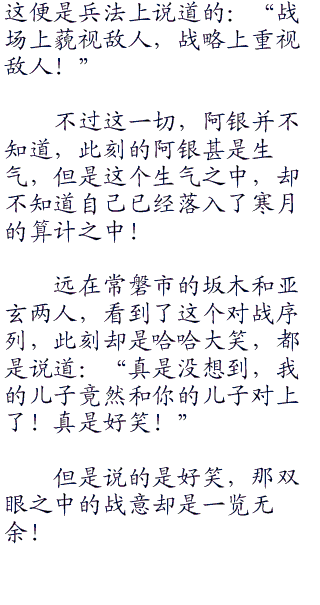 这便是兵法上说道的：“战
场上藐视敌人，战略上重视
敌人！”
不过这一切，阿银并不
知道，此刻的阿银甚是生
气，但是这个生气之中，却
不知道自己已经落入了寒月
的算计之中！
远在常磐市的坂木和亚
玄两人，看到了这个对战序
列，此刻却是哈哈大笑，都
是说道：“真是没想到，我
的儿子竟然和你的儿子对上
了！真是好笑！”
但是说的是好笑，那双
眼之中的战意却是一览无
余！